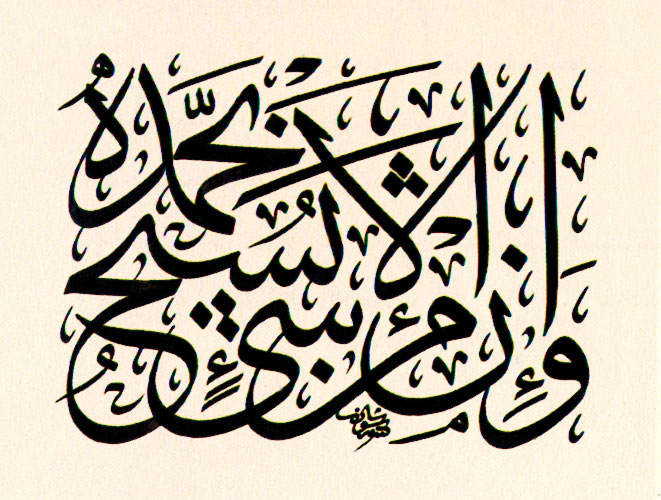 وَإِن مِّن شَيْءٍ إِلَّا يُسَبِّحُ بِحَمْدِهِ